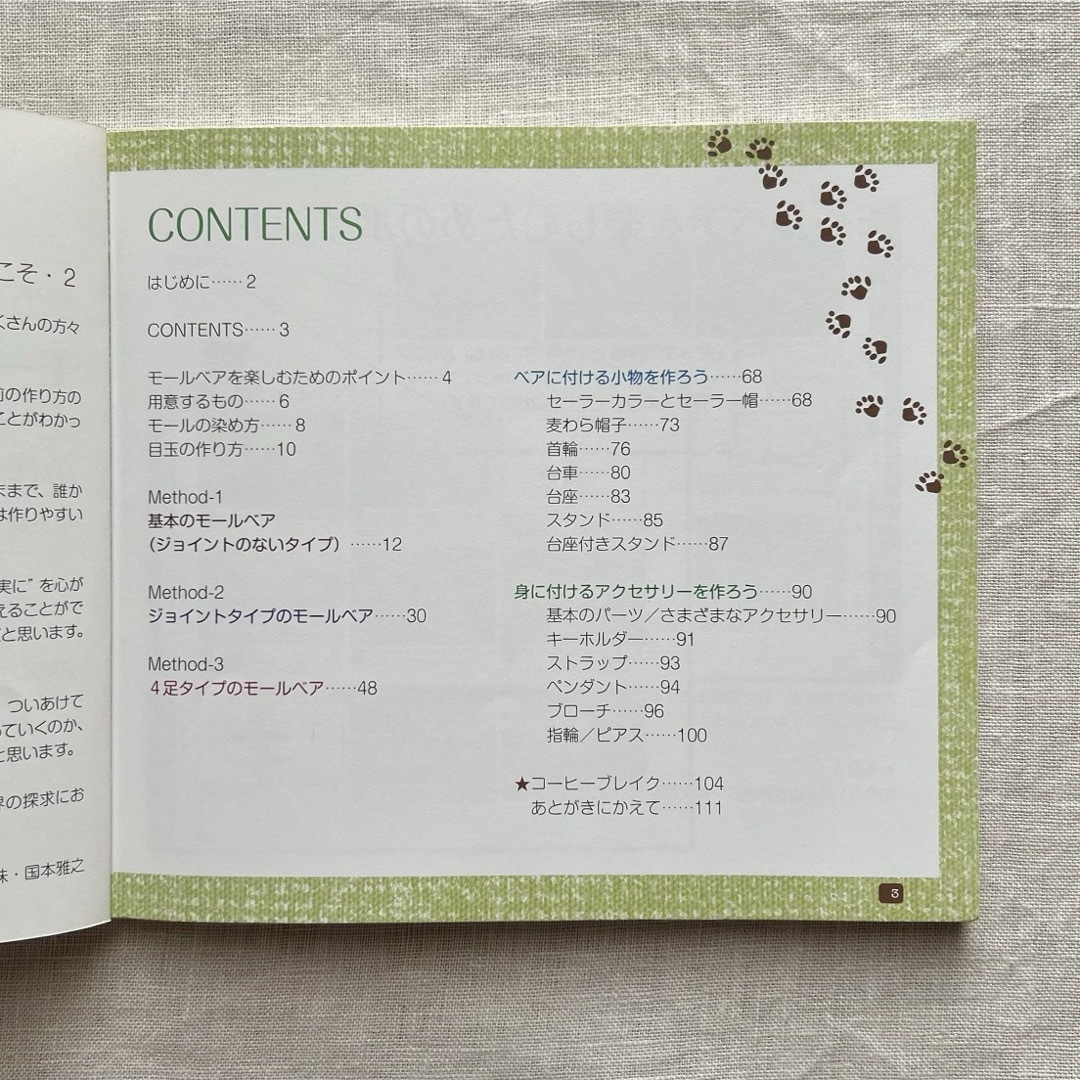 こそ・2
くさんの方々
の作り方の
ことがわかっ
まで、誰か
は作りやすい
実に"を心が
えることがで
と思います。
ついあけて
っていくのか、
と思います。
の探求にお
味・国本雅之
CONTENTS
はじめに……2
CONTENTS……3
モールベアを楽しむためのポイント……4
用意するもの……6
モールの染め方……8
目玉の作り方……10
Method-1
基本のモールベア
（ジョイントのないタイプ）……12
Method-2
ジョイントタイプのモールベア……30
Method-3
4足タイプのモールベア……48
ベアに付ける小物を作ろう……68
セーラーカラーとセーラー帽……68
麦わら帽子……73
首輪……76
台車……80
台座……83
スタンド……85
台座付きスタンド……87
身に付けるアクセサリーを作ろう……90
基本のパーツ／さまざまなアクセサリー……90
キーホルダー……91
ストラップ……93
ペンダント……94
ブローチ……96
指輪／ピアス……100
★コーヒーブレイク……104
あとがきにかえて……111
3